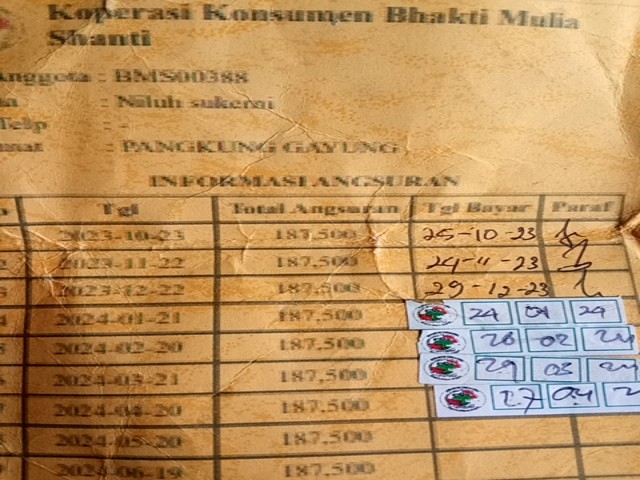 Koperasi Konsumen Bhakti Mulia
Shanti
Anggota : BMS00388
: Niluh sukerni
Telp : -
: PANGKUNG GAYUNG
INFORMASI ANGSURAN
Tgl Total Angsuran Tgl Bayar Paraf
2023-10-23 187,500 25-10-23
2023-11-22 187,500 24-11-23
2023-12-22 187,500 29-12-23
2024-01-21 187,500 24 01 24
2024-02-20 187,500 26 02 24
2024-03-21 187,500 29 03 24
2024-04-20 187,500 27 04 2
2024-05-20 187,500
2024-06-19 187,500